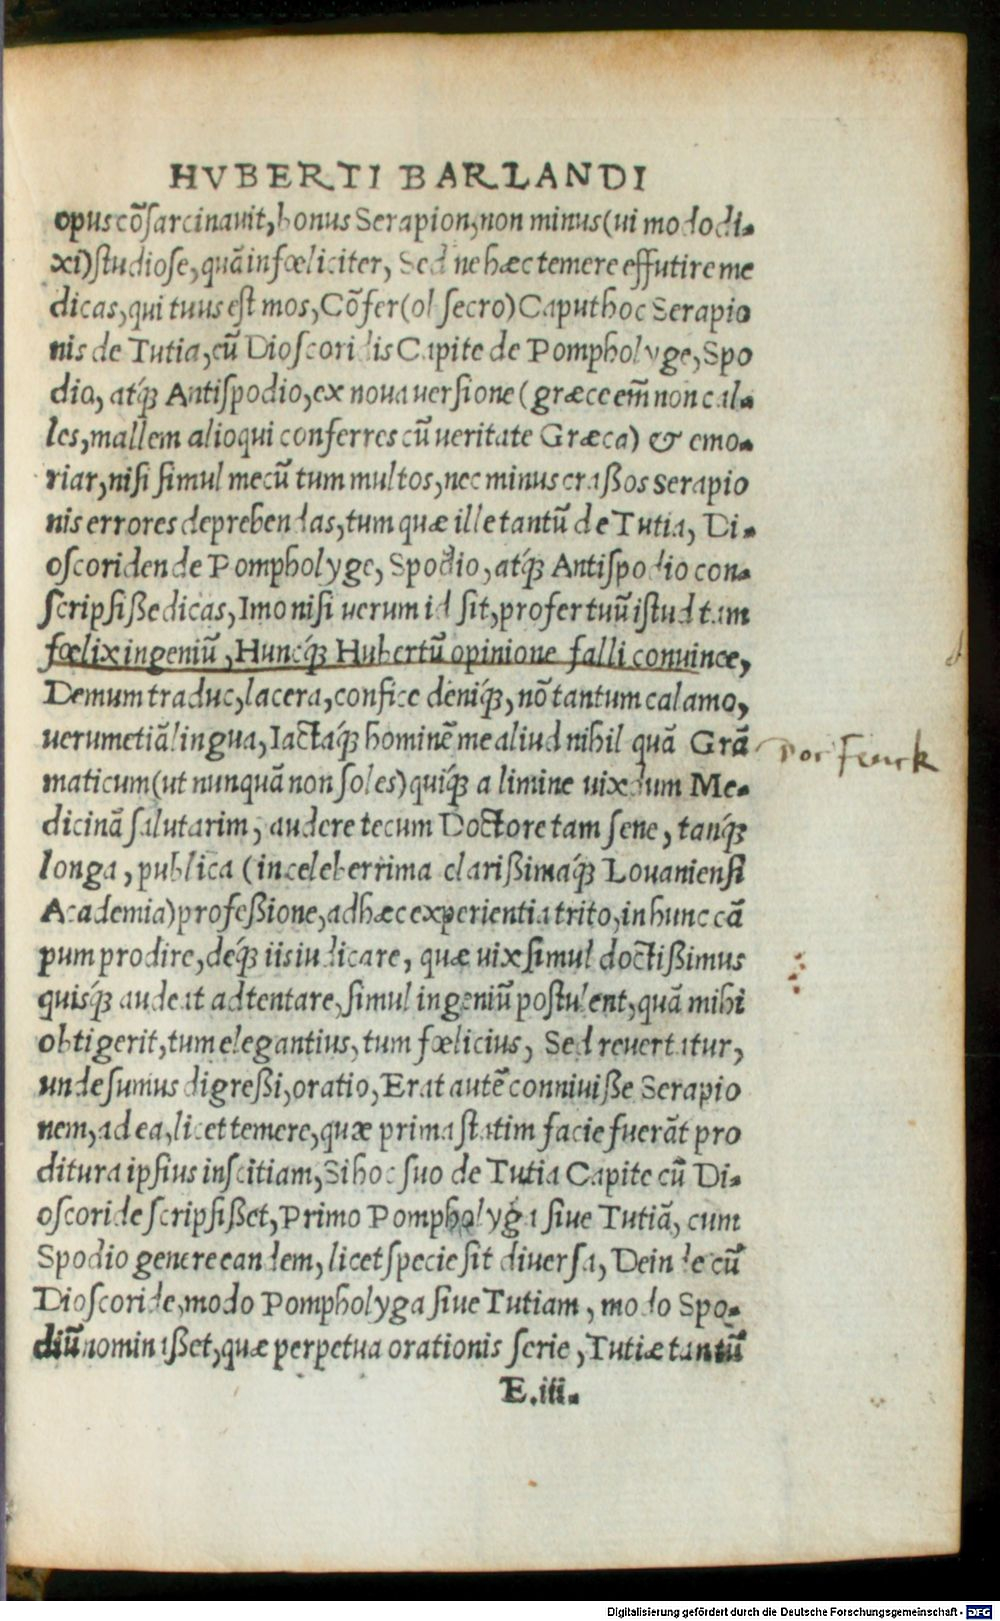 HVBERTI BARLANDI
opus cõsarcinauit, bonus Serapion, non minus (ui modo di-
xi) studiose, quã infœliciter, Sed ne hæc temere effutire me
dicas, qui tuus est mos, Cõfer (ol secro) Caput hoc Serapio
nis de Tutia, cũ Dioscoridis Capite de Pompholyge, Spo
dio, atq́ꝫ Antispodio, ex noua uersione (græce em̃ non cal-
les, mallem alioqui conferres cũ ueritate Græca) & emo-
riar, nisi simul mecũ tum multos, nec minus craßos Serapio
nis errores deprehendas, tum quæ ille tantũ de Tutia, Di-
oscoriden de Pompholyge, Spodio, atq́ꝫ Antispodio con-
scripsiße dicas, Imo nisi uerum id sit, profer tuũ istud tam
fœlix ingeniũ, Huncq́ꝫ Hubertũ opinione falli conuince,
Demum traduc, lacera, confice deniq́ꝫ, nõ tantum calamo,
uerumetiã lingua, Iactaq́ꝫ hominẽ me aliud nihil quã Grã
maticum (ut nunquã non soles) quiq́ꝫ a limine uixdum Me-
dicinã salutarim, audere tecum Doctore tam sene, tanq́ꝫ
longa, publica (in celeberrima clarißimaq́ꝫ Louaniensi
Academia) profeßione, adhæc experientia trito, in hunc cã
pum prodire, deq́ꝫ iis iudicare, quæ uix simul doctißimus
quisq́ꝫ audeat adtentare, simul ingeniũ postulent, quã mihi
obtigerit, tum elegantius, tum fœlicius, Sed reuertatur,
unde sumus digreßi, oratio, Erat autẽ conniuiße Serapio
nem, ad ea, licet temere, quæ prima statim facie fuerãt pro
ditura ipsius inscitiam, Si hoc suo de Tutia Capite cũ Di-
oscoride scripsißet, Primo Pompholyga siue Tutiã, cum
Spodio genere eandem, licet specie sit diuersa, Deinde cũ
Dioscoride, modo Pompholyga siue Tutiam, modo Spo-
diũ nominaßet, quæ perpetua orationis serie, Tutiæ tantũ
E.iii.
Digitalisierung gefördert durch die Deutsche Forschungsgemeinschaft - DFG